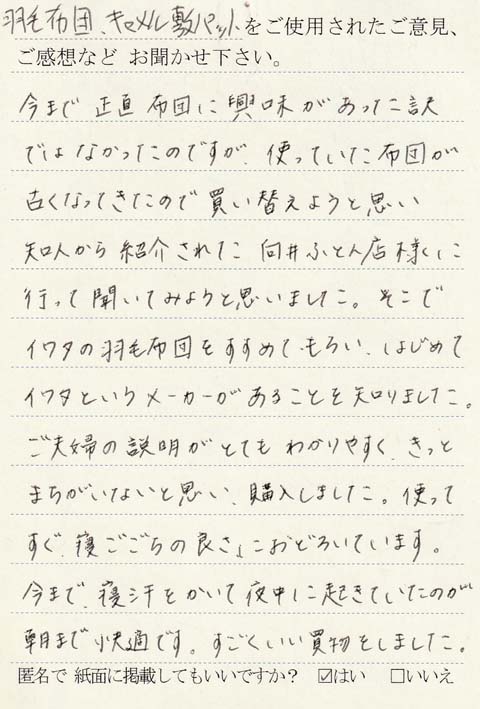 羽毛布団、キャメル敷パットをご使用されたご意見、
ご感想など お聞かせ下さい。
今まで 正直 布団に興味があった訳
ではなかったのですが、使っていた布団が
古くなってきたので買い替えようと思い
知人から紹介された 向井ふとん店様に
行って聞いてみようと思いました。そこで
イワタの羽毛布団をすすめてもらい、はじめて
イワタというメーカーがあることを知りました。
ご夫婦の説明がとてもわかりやすく、きっと
まちがいないと思い、購入しました。使って
すぐ、寝ごごちの良さにおどろいています。
今まで、寝汗をかいて夜中に起きていたのが
朝まで快適です。すごくいい買物をしました。
匿名で 紙面に掲載してもいいですか？ ☑はい □いいえ